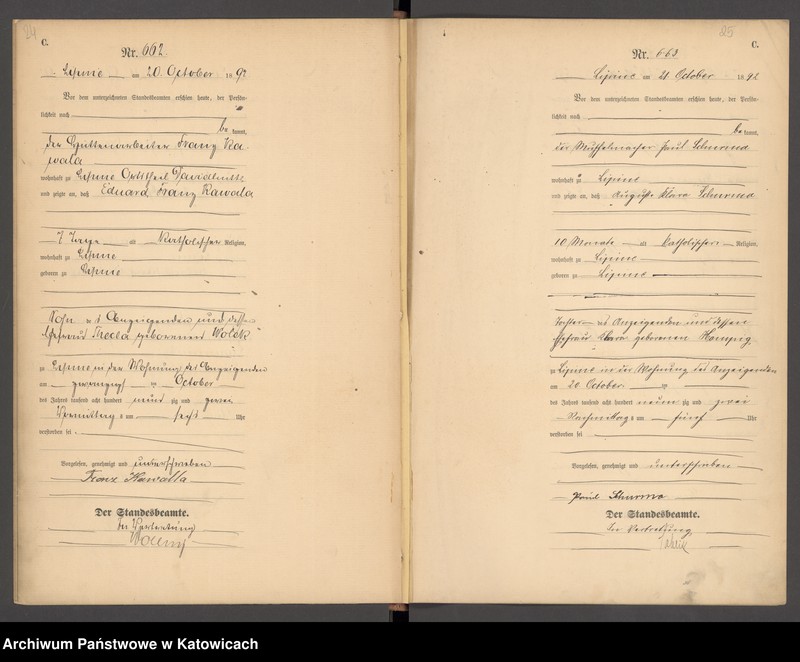 24
C.
Nr. 662.
Lipine am 20. October 1892
Vor dem unterzeichneten Standesbeamten erschien heute, der Persön-
lichkeit nach
be kannt,
der Hüttenarbeiter Franz Ka-
wala
wohnhaft zu Lipine Ortstheil
und zeigte an, daß Eduard Franz Kawala
7 Tage alt Katholischer Religion,
wohnhaft zu Lipine
geboren zu Lipine
Sohn des Anzeigenden und dessen
Ehefrau Thecla geborenen Wolek
zu Lipine in der Wohnung des Anzeigenden
am zwanzigsten October
des Jahres tausend acht hundert neunzig und zwei
Vormittags um sechs Uhr
verstorben sei
Vorgelesen, genehmigt und unterschrieben
Franz Kawalla
Der Standesbeamte.
In Vertretung
25
C.
Nr. 663
Lipine am 21 October 1892
Vor dem unterzeichneten Standesbeamten erschien heute, der Persön-
lichkeit nach
be kannt,
der Paul
wohnhaft zu Lipine
und zeigte an, daß Auguste Klara
10 Monate alt Katholischer Religion,
wohnhaft zu Lipine
geboren zu Lipine
Tochter des Anzeigenden und dessen
Ehefrau Klara geborenen
zu Lipine in der Wohnung des Anzeigenden
am 20 October
des Jahres tausend acht hundert neunzig und zwei
Nachmittags um fünf Uhr
verstorben sei
Vorgelesen, genehmigt und unterschrieben
Paul
Der Standesbeamte.
In Vertretung
Archiwum Państwowe w Katowicach